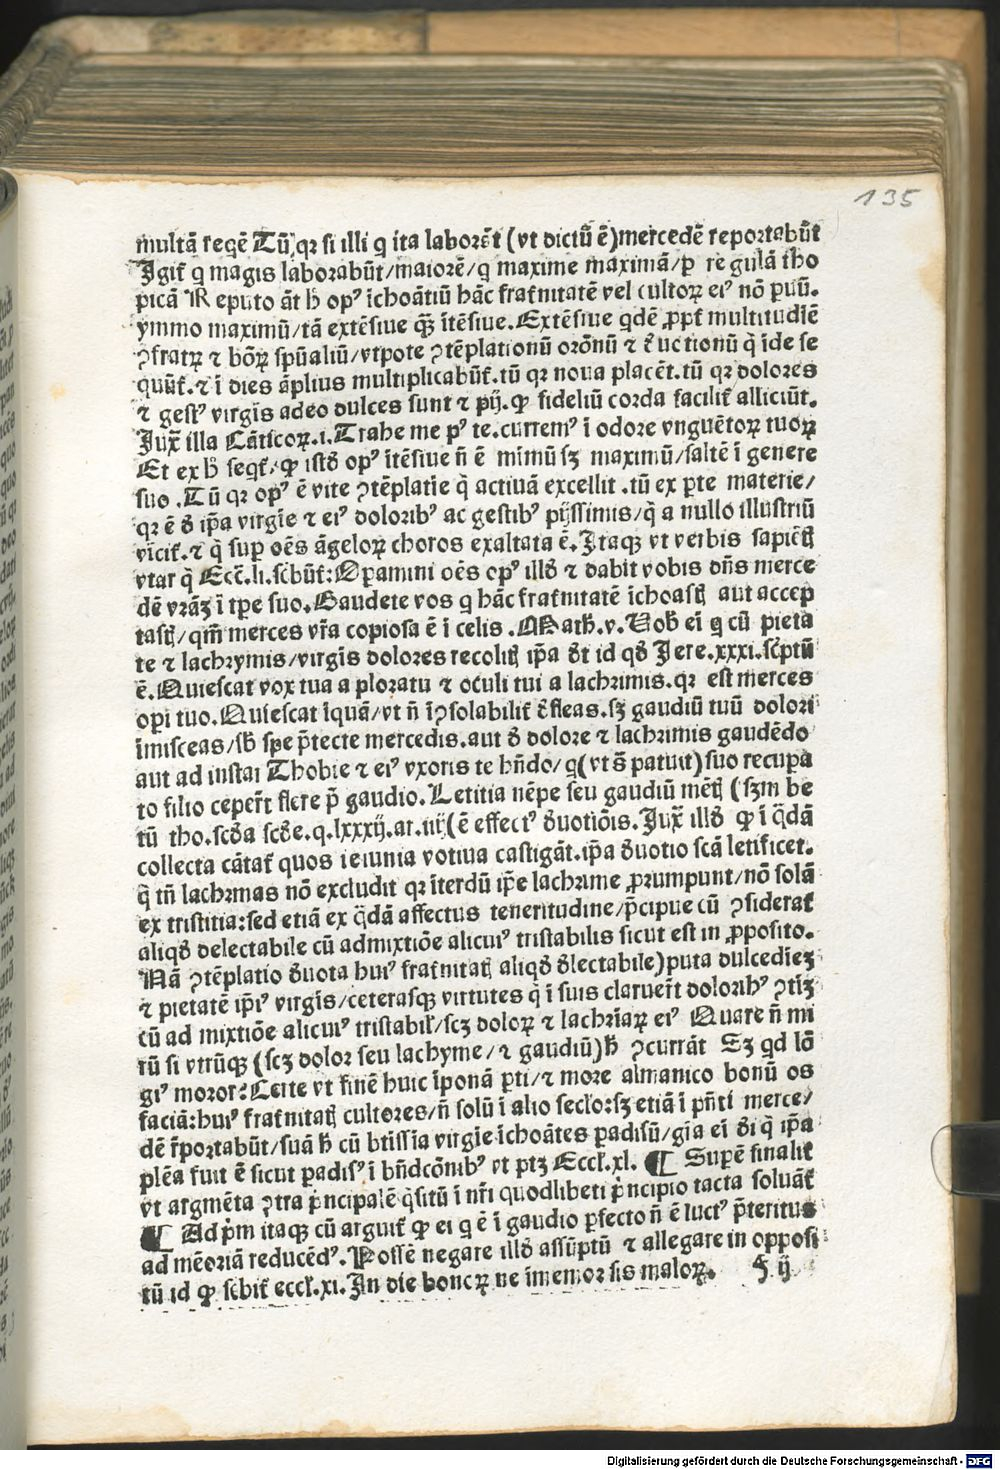 135
multā regē Tū qꝛ si illi q ita laborēt (vt dictū ē) mercedē reportabūt
Igiť q magis laborabūt/maiorē/q maxime maximā/ꝑ regulā tho
picā Reputo āt ħ opꝰ ichoātiū hāc frať́nitatē vel cultoꝝ eiꝰ nō ꝑuū.
ymmo maximū/tā extēsiue qȝ̄ itēsiue. Extēsiue qdē ꝓpť multitudiē
ꝯfratꝝ ⁊ bōꝝ spūaliū/vtpote ꝯtēplationū orōnū ⁊ uctionū q̇ ide se
quūť. ⁊ i dies āplius multiplicabūť. tū qꝛ noua placēt. tū qꝛ dolores
⁊ gestꝰ virgīs adeo dulces sunt ⁊ pij. ꝙ fideliū corda faciliť alliciūt.
Juẋ illa Cāticoꝝ.i. Trahe me pꝰ te. curremꝰ i odore vnguētoꝝ tuoꝝ
Et ex ħ seqť/ꝙ istđ opꝰ itēsiue n̄ ē mimū sꝫ maximū/saltē i genere
suo. Tū qꝛ opꝰ ē vite ꝯtēplatīe q̇ actiuā excellit. tū ex ꝑte materie/
qꝛ ē đ ip̄a virgīe ⁊ eiꝰ doloribꝰ ac gestibꝰ pijssimis/q̇ a nullo illustriū
vīciť. ⁊ q̇ suꝑ oēs āgeloꝝ choros exaltata ē. Itaqꝫ vt verbis sapiētꝭ
vtar q̇ Eccē.li. scͥbūť: Oꝑamini oēs opꝰ illđ ⁊ dabit vobis dn̄s merce
dē vrāꝫ i tꝑe suo. Gaudete vos q hāc frať́nitatē ichoastꝭ aut accep
tastꝭ/qm̄ merces vr̄a copiosa ē i celis. Math.v. Vob̄ ei q cū pieta
te ⁊ lachrymis/virgīs dolores recolitꝭ ip̄a đt id qđ Jere.xxxi. scͥptū
ē. Quiescat vox tua a ploratu ⁊ oculi tui a lachrimis. qꝛ est merces
oꝑi tuo. Quiescat iquā/vt n̄ iꝯsolabiliť fleas. sꝫ gaudiū tuū dolori
īmisceas/sb̄ spe p̄tecte mercedis. aut đ dolore ⁊ lachrimis gaudēdo
aut ad instar Thobie ⁊ eiꝰ vxoris te hn̄do/q (vt s̄ patuit) suo recuꝑa
to filio ceper̄t flere p̄ gaudio. Letitia nēpe seu gaudiū mētꝭ (sꝫm be
tū tho. scđa scđe.q.lxxxij.ar.iiij (ē effectꝰ đuotiōis. Juẋ illđ ꝙ i q̄dā
collecta cātať quos ieiunia votiua castigāt. ip̄a đuotio scā letificet.
q̇ tn̄ lachrimas nō excludit qꝛ iterdū ip̄e lachrime ꝓrumpunt/nō solā
ex tristitia: sed etiā ex q̄dā affectus teneritudine/p̄cipue cū ꝯsiderať
aliqđ delectabile cū admixtiōe alicuiꝰ tristabilis sicut est in ꝓposito.
Nā ꝯtēplatio đuota huiꝰ frať́nitatꝭ aliqđ đlectabile) puta dulcediēꝫ
⁊ pietatē ip̄iꝰ virgīs/ceterasqꝫ virtutes q̇ i suis claruer̄t doloribꝰ ꝯtīꝫ
cū ad mixtiōe alicuiꝰ tristabil̄/scꝫ doloꝝ ⁊ lachrīaꝝ eiꝰ Quare n̄ mi
rū si vtrūqꝫ (scꝫ dolor seu lachyme/⁊ gaudiū) ħ ꝯcurrāt Sꝫ qd lō
giꝰ moror: Certe vt finē huic iponā ꝑti/⁊ more almanico bonū os
faciā: huiꝰ frať́nitatꝭ cultores/n̄ solū i alio seclo: sꝫ etiā i pn̄ti merce/
dē r̄portabūt/suā ħ cū btissīa virgīe ichoātes ꝑadisū/gīa ei đi q̇ ip̄a
plēa fuit ē sicut ꝑadisꝰ i bn̄dcōnibꝰ vt ptꝫ Eccl̄.xl. ¶ Superē finaliť
vt argmēta ꝯtra pͥncipalē q̄sitū i nr̄i quodlibeti pͥncipio tacta soluāť
¶ Ad pͥm itaqꝫ cū arguiť ꝙ ei q ē i gaudio ꝑfecto n̄ ē luctꝰ p̄teritus
ad mēoriā reducēdꝰ. Possē negare illđ assūptū ⁊ allegare in opposi
tū id ꝙ scͥbiť eccl̄.xi. In die bonoꝝ ne īmemor sis maloꝝ. ꝭ ij
Digitalisierung gefördert durch die Deutsche Forschungsgemeinschaft - DFG